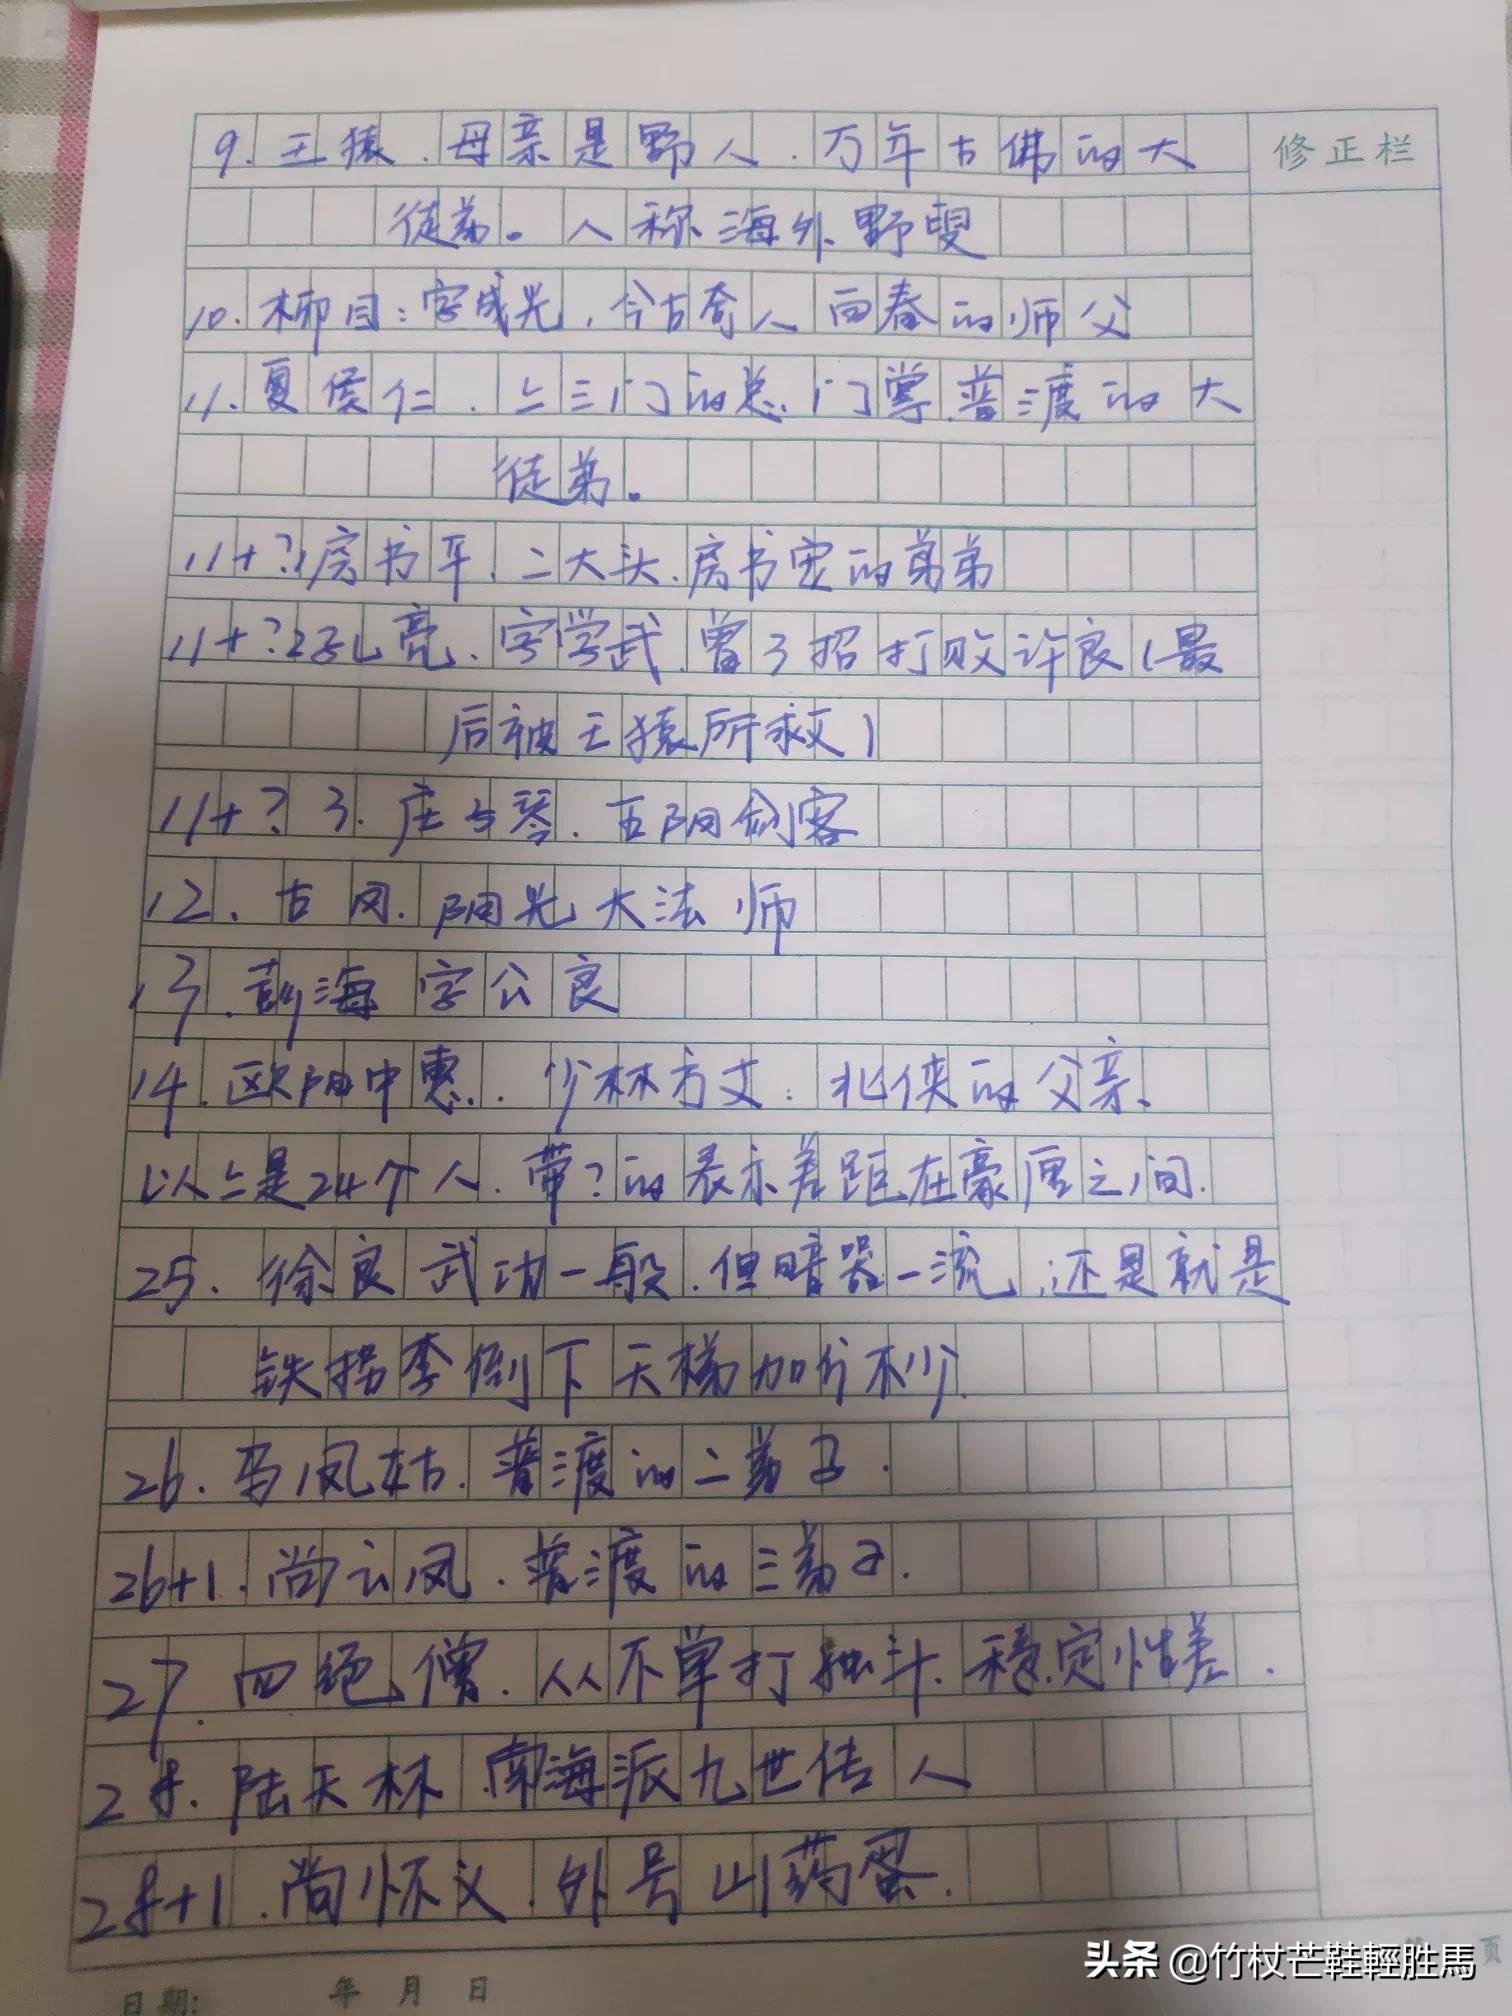 9.王猿.母亲是野人.万年古佛的大
修正栏
徒弟。人称海外野叟
10.柳目:字成光,今古奇人 回春的师父
11.夏侯仁.上三门的总门掌.普渡的大
徒弟。
11+?1房书平.二大头.房书安的弟弟
11+?2孔亮.字学武.曾3招打败许良(最
后被王猿所救)
11+? 3.庄与琴.五阴剑客
12.古月.阴光大法师
13.蒋海 字公良
14.欧阳中惠.少林方丈.北侠的父亲.
以上是24个人.带?的表示差距在豪厘之间.
25.徐良 武功一般.但暗器一流,还是就是
铁拐李倒下天梯加分不少.
26.马凤姑.普渡的二弟子.
26+1.尚云凤.普渡的三弟子.
27.四绝僧.从不单打独斗.稳定性差.
28.陆天林.南海派九世传人
28+1.尚怀义.外号山药蛋.
页
日期: 年 月 日
头条 @竹杖芒鞋輕胜馬